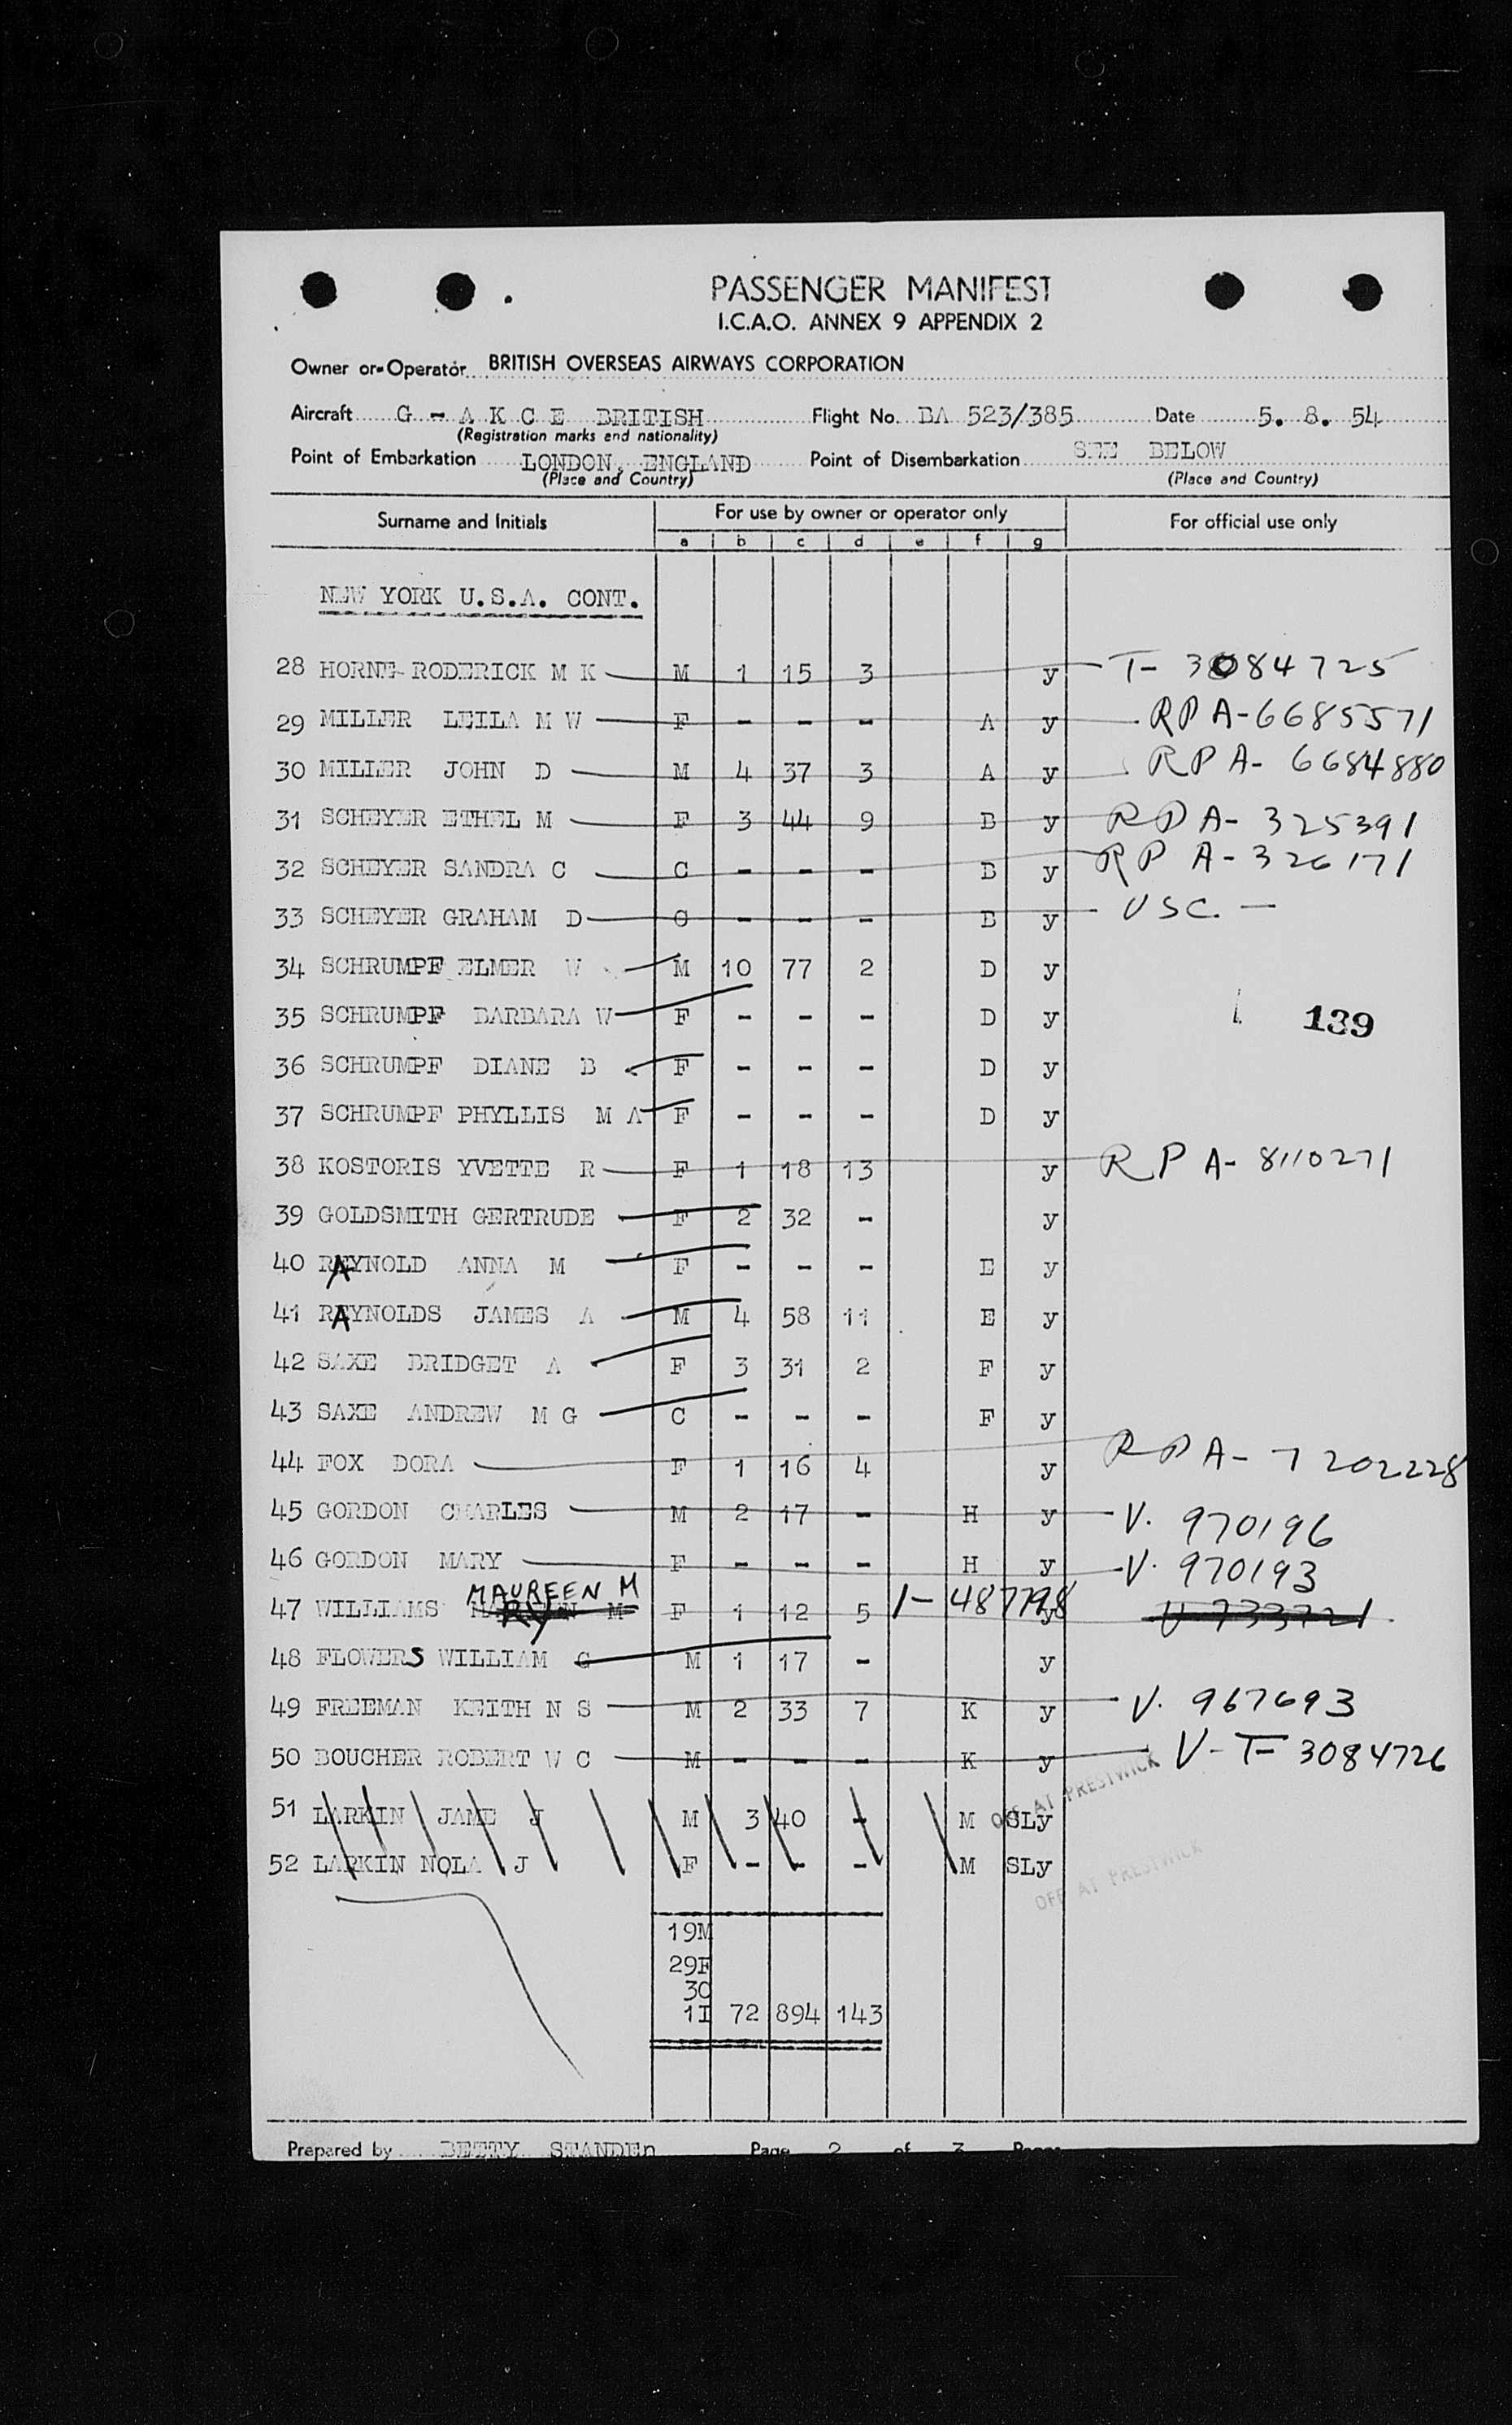 PASSENGER MANIFEST
I.C.A.O. ANNEX 9 APPENDIX 2
Owner or Operator BRITISH OVERSEAS AIRWAYS CORPORATION
Aircraft G - A K C E BRITISH Flight No. BA 523/385 Date 5. 8. 54
(Registration marks and nationality)
Point of Embarkation LONDON, ENGLAND Point of Disembarkation SEE BELOW
(Place and Country) (Place and Country)
Surname and Initials For use by owner or operator only For official use only
a b c d e f g
NEW YORK U.S.A. CONT.
28 HORNE RODERICK M K M 1 15 3 y T- 3084725
29 MILLER LEILA M W F - - - A y RP A-6685571
30 MILLER JOHN D M 4 37 3 A y RP A- 6684880
31 SCHEYER ETHEL M F 3 44 9 B y RP A- 325391
32 SCHEYER SANDRA C C - - - B y RP A-326171
33 SCHEYER GRAHAM D C - - - B y USC. —
34 SCHRUMPF ELMER W M 10 77 2 D y
35 SCHRUMPF BARBARA W F - - - D y 139
36 SCHRUMPF DIANE B F - - - D y
37 SCHRUMPF PHYLLIS M A F - - - D y
38 KOSTORIS YVETTE R F 1 18 13 y RP A- 8110271
39 GOLDSMITH GERTRUDE F 2 32 - y
40 RAYNOLD ANNA M F - - - E y
41 RAYNOLDS JAMES A M 4 58 11 E y
42 SAXE BRIDGET A F 3 31 2 F y
43 SAXE ANDREW M G C - - - F y
44 FOX DORA F 1 16 4 y RP A- 7202228
45 GORDON CHARLES M 2 17 - H y V. 970196
46 GORDON MARY F - - - H y V. 970193
MAUREEN M
47 WILLIAMS M F 1 12 5 1-487798 y V 733721
48 FLOWERS WILLIAM G M 1 17 - y
49 FREEMAN KEITH N S M 2 33 7 K y V. 967693
50 BOUCHER ROBERT W C M - - - K y V-T- 3084726
OFF AT PRESTWICK
51 LARKIN JAME J M 3 40 - M SLy
52 LARKIN NOLA J F - - - M SLy
OFF AT PRESTWICK
19M
29F
3C
1I 72 894 143
Prepared by BETTY STANDEn Page 2 of 3 Pages